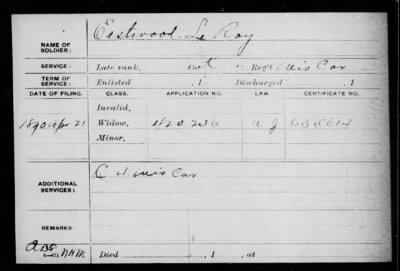 Eastwood Le Roy
NAME OF
SOLDIER:
SERVICE: Late rank, 4 Reg't Wis Cav
TERM OF
SERVICE: Enlisted , 1 Discharged , 1
DATE OF FILING. CLASS. APPLICATION NO. LAW CERTIFICATE NO.
Invalid,
1890 Apr 21 Widow, 420.236 655614
Minor,
C 4 Wis Cav
ADDITIONAL
SERVICES:
REMARKS:
Died , 1 , at